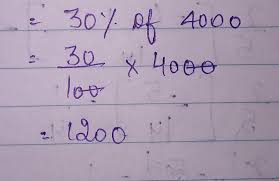 = 30% of 4000
= 30/100 × 4000
= 1200